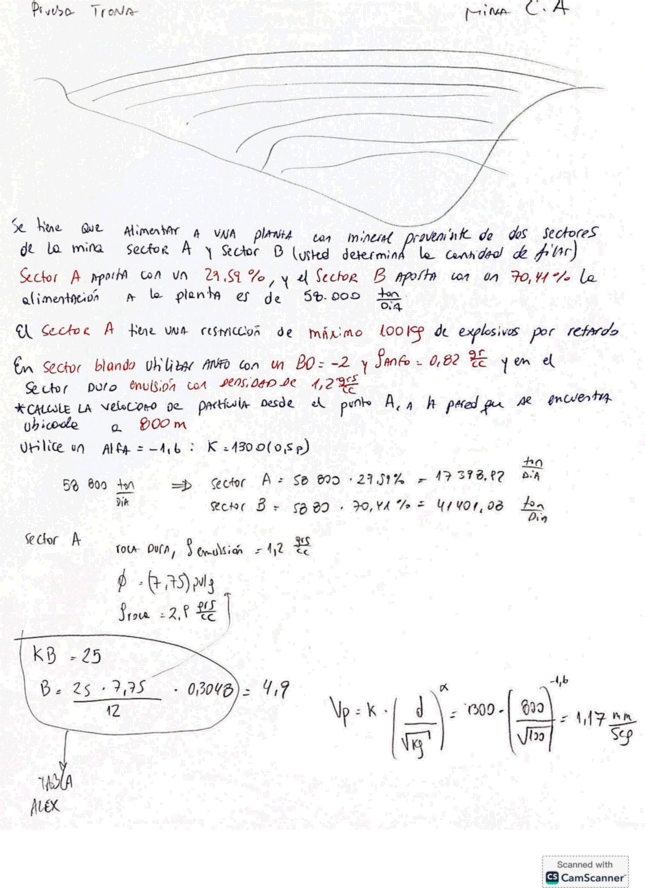 Prueba TRONA
MINA C.A
Se tiene que Alimentar A UNA PLANTA con mineral proveniente de dos sectores
de la mina sector A y Sector B (usted determina la cantidad de filas)
Sector A Aporta con un 29,59 %, y el Sector B Aporta con un 70,41 % la
alimentación A la planta es de 58.000 ton/Dia
El Sector A tiene una restricción de máximo 100 kg de explosivos por retardo
En Sector blando Utilizar ANFO con un BO = -2 y ρANFO = 0,82 gr/cc y en el
Sector DURO emulsión con densidad de 1,2 grs/cc
*CALCULE LA VELOCIDAD DE PARTÍCULA DESDE el punto A, A la pared que se encuentra
ubicada a 800 m
Utilice un Alfa = -1,6 : K = 1300 (0,5p)
58 800 ton/Dia ⇒ sector A = 58 800 · 29,59% = 17 398,92 ton/Dia
sector B = 58 80 · 70,41 % = 41401,08 ton/Dia
Sector A
roca DURA, ρ emulsión = 1,2 grs/cc
ϕ = (7,75) pulg
ρroca = 2,8 grs/cc
KB = 25
B = 25 · 7,75 / 12 · 0,3048 = 4,9
Vp = K · (d/√kg)^α = 1300 · (800/√100)^-1,6 = 1,17 mm/seg
TABLA
ALEX
Scanned with
CS CamScanner